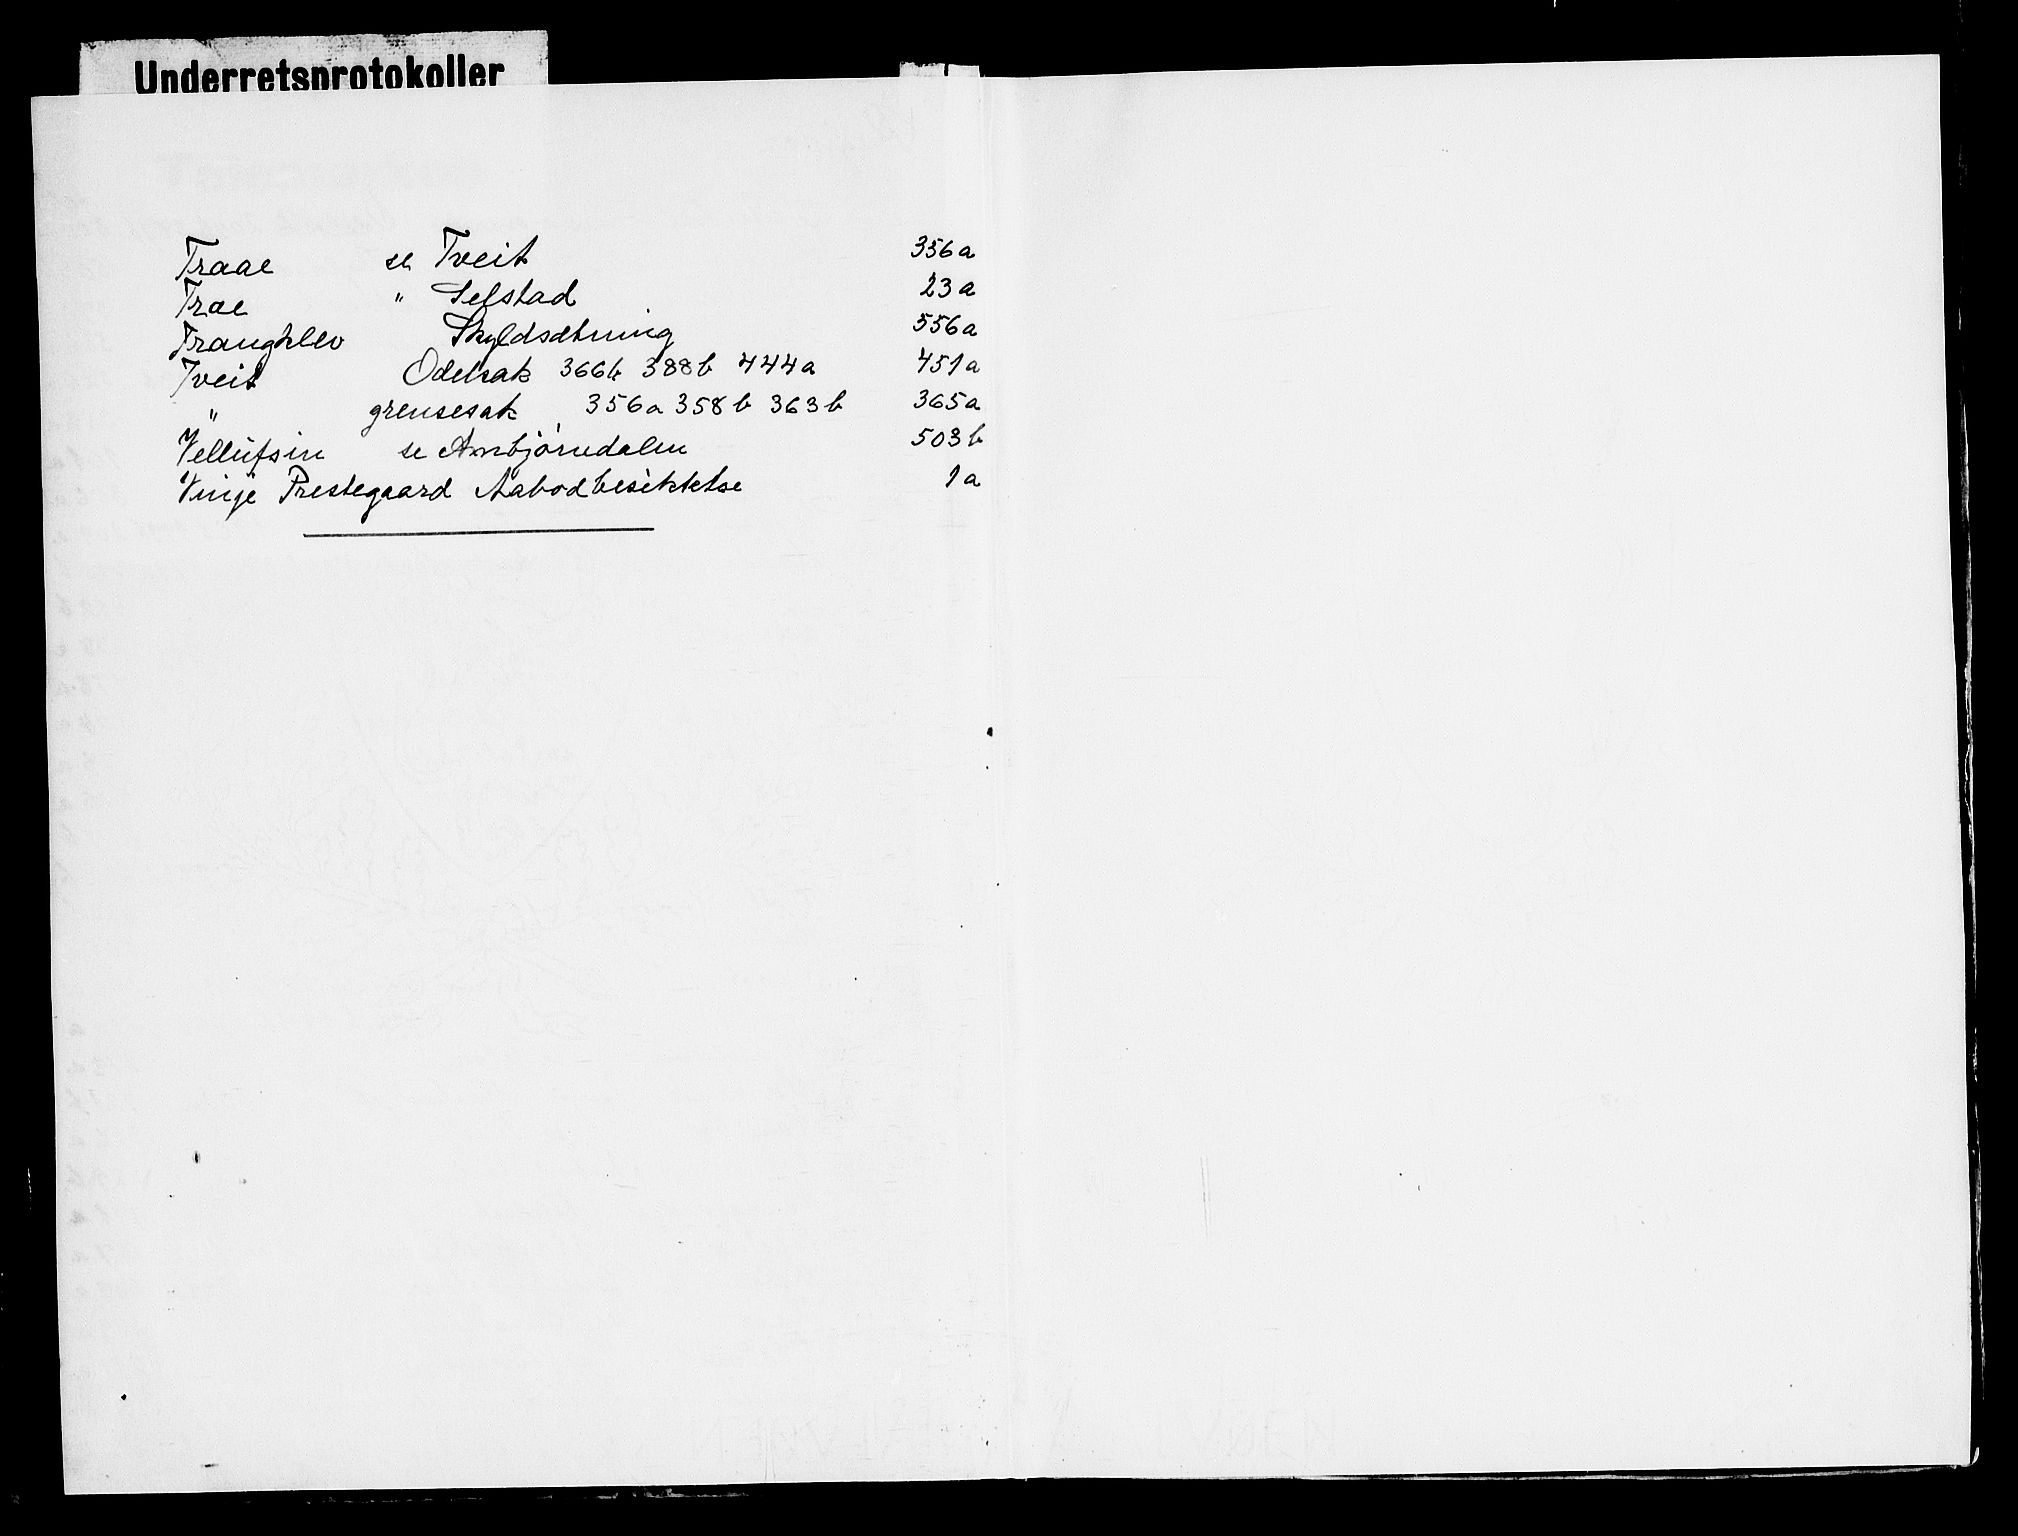 Underretsprotokoller
Traae se Tveit 356a
Trae " Selstad 23a
Trangklev Skyldsætning 556a
Tveit Odelsak 366b 388b 444a 451a
" grensesak 356a 358b 363b 365a
se Arnbjørnedalen 503b
Vinje Prestegaard Aabodbesiktelse 1a